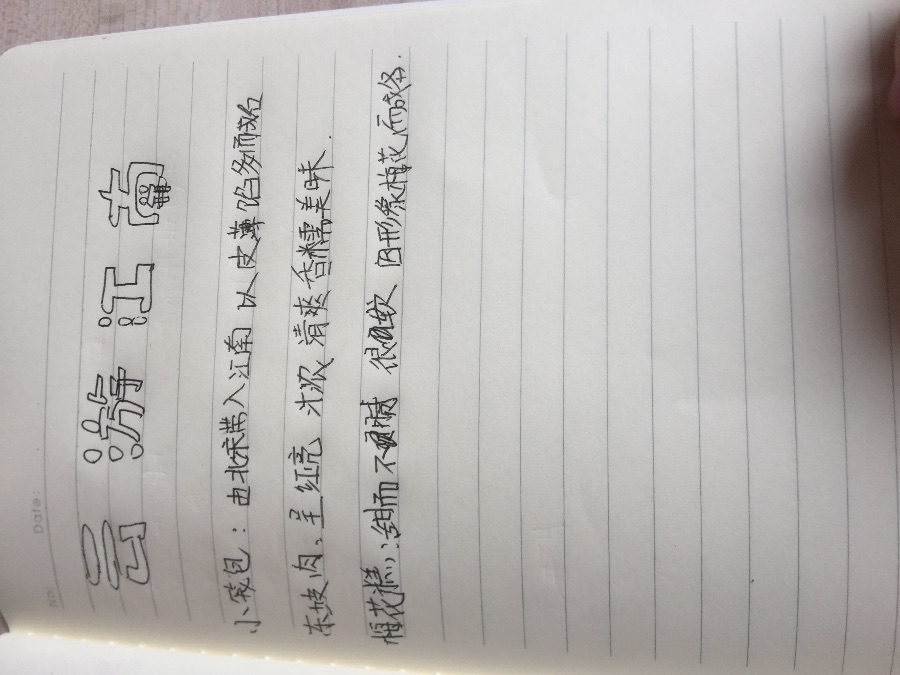 No:
Date:
云游江南
小笼包：由北宋带入江南 以皮薄馅多而成名
东坡肉、呈红亮 汁浓 清爽香糯美味.
梅花糕：甜而不腻 很Q软 因形象梅花而成名.